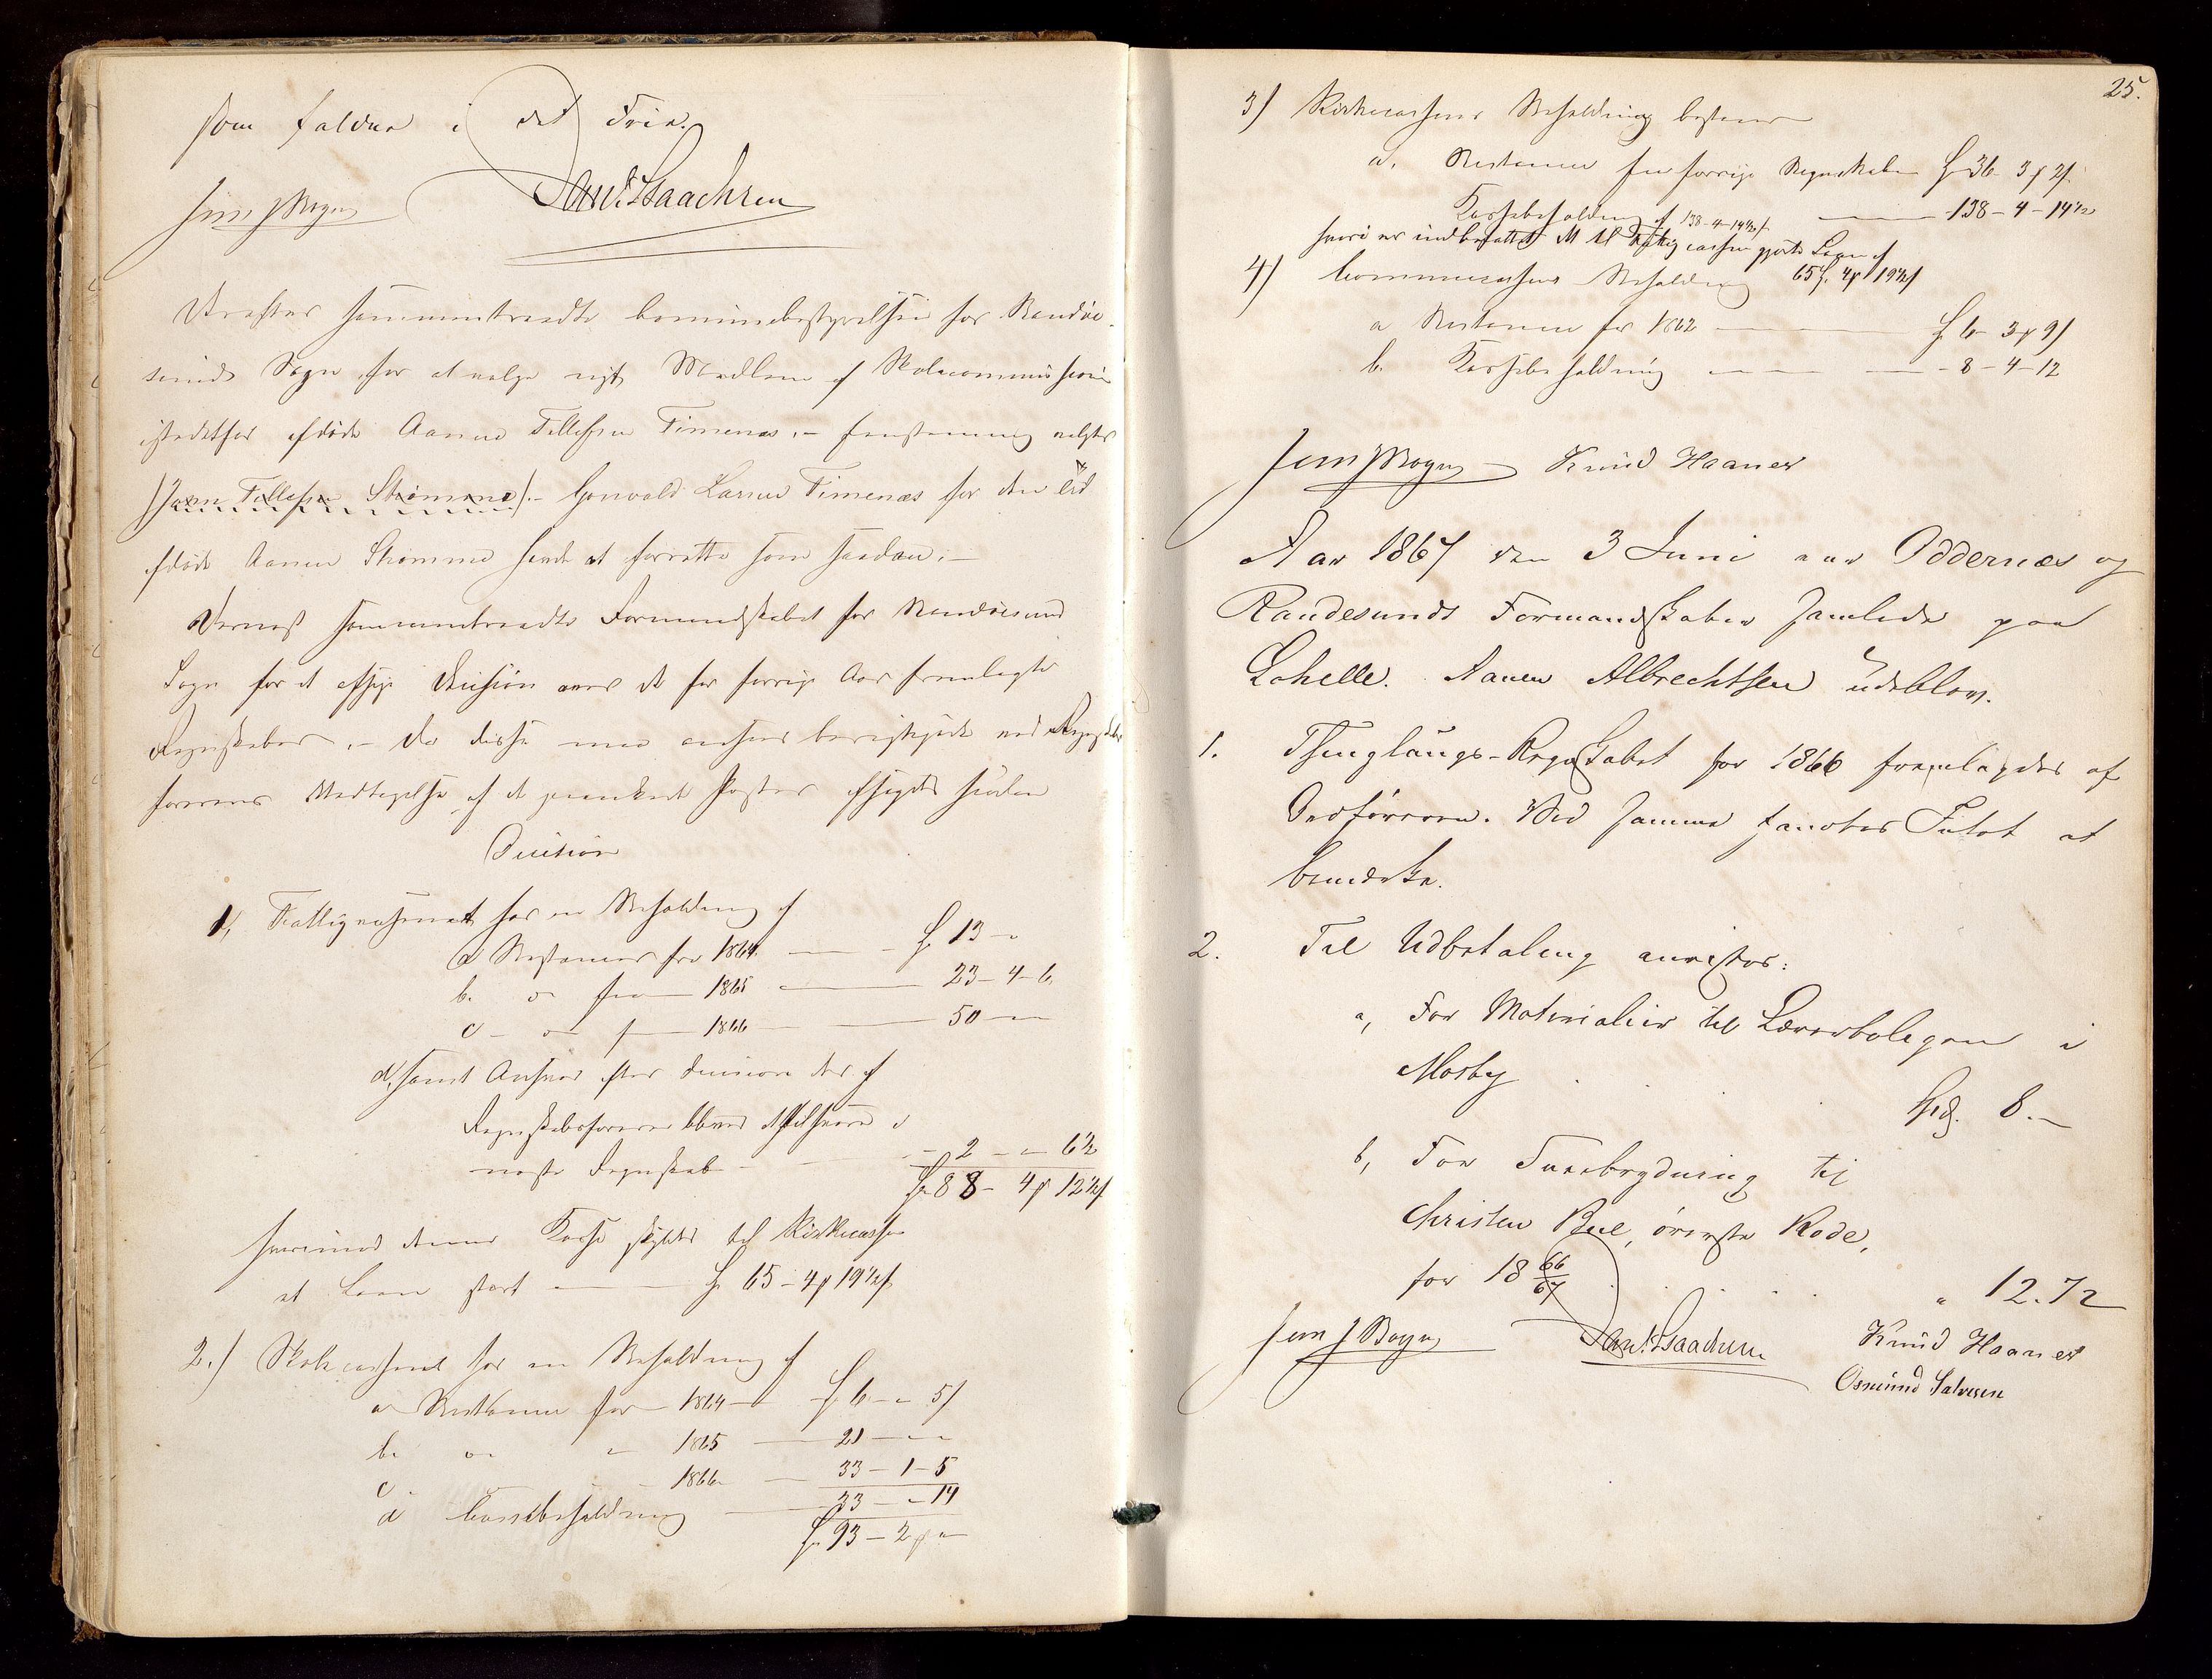 som falder i det Frie.
Jens J Bogn Dan. Isaachsen
Derefter sammentraadte Communebestyrelsen for Randø-
sunds Sogn for at vælge nyt Medlem af Skolecommissionen
istedetfor afdøde Aanen Tellefsen Timenes, – Eenstemmig valgtes
(Jaen Tellefsen Strømme). – Gonvald Larsen Timenæs for den Tid
afdøde Aanen Strømme havde at forrette som saadan. –
Dernæst sammentraadte Formandskabet for Randøsund
Sogn for at afsige Decision over de for forrige Aar fremlagte
Regnskaber. – Da disse maa ansees berigtigede ved Regnskabs-
førerens Vedtagelse af de paaankede Poster afsigtes saadan
Decision
1, Fattigcassen har en Beholdning af
a Restancer fra 1864 — 13 –
b. do fra — 1865 — 23 – 4 – 6
c – do f — 1866 — 50 –
d, samt Ansvar efter Decisionen der af
Regnskabsføreren bliver at tilsvare i
næste Regnskab – 2 – – 6½
88 – 4 12½
hvorimod denne Kasse skylder til Kirkecassen
et Laan stort — 65 – 4 19½
2.) Skolecassen har en Beholdning af
a Restancer for 1864 — 6 – 5
b. do – 1865 — 21 – –
c – 1866 — 33 – 1 – 5
d Cassebeholdning — 33 – – 14
93 – 2 –
25.
3) Kirkecassens Beholdning bestaaer
a. Restancer fra forrige Regnskaber 36 3 2
Kassebeholdning af 138-4-14½ — 138 – 4 – 14½
hvori er indbefattet det til Fattigcassen gjorte Laan af
65 4 19½
4) Communecassens Beholdning
a Restancer for 1862 — 6 – 3 9
b. Kassebeholdning — 8 – 4 – 12
Jens J Bogn Knud Haanes
Aar 1867 den 3 Juni var Oddernæs og
Randesunds Formandskaber samlede paa
Lohelle. Aanen Albrechtsen udeblev.
1. Thinglaugs-Regnskabet for 1866 fremlagdes af
Ordføreren. Ved samme fandtes Intet at
bemærke.
2. Til Udbetaling anvistes:
a, For Materialier til Lærerboligen i
Mosby . . . Spd. 8. –
b, For Snebrydning til
Christen Bue, øverste Rode,
for 18 66/67 . . . " 12. 72
Jens J Bogn Dan. Isaachsen Knud Haanes
Osmund Salvesen